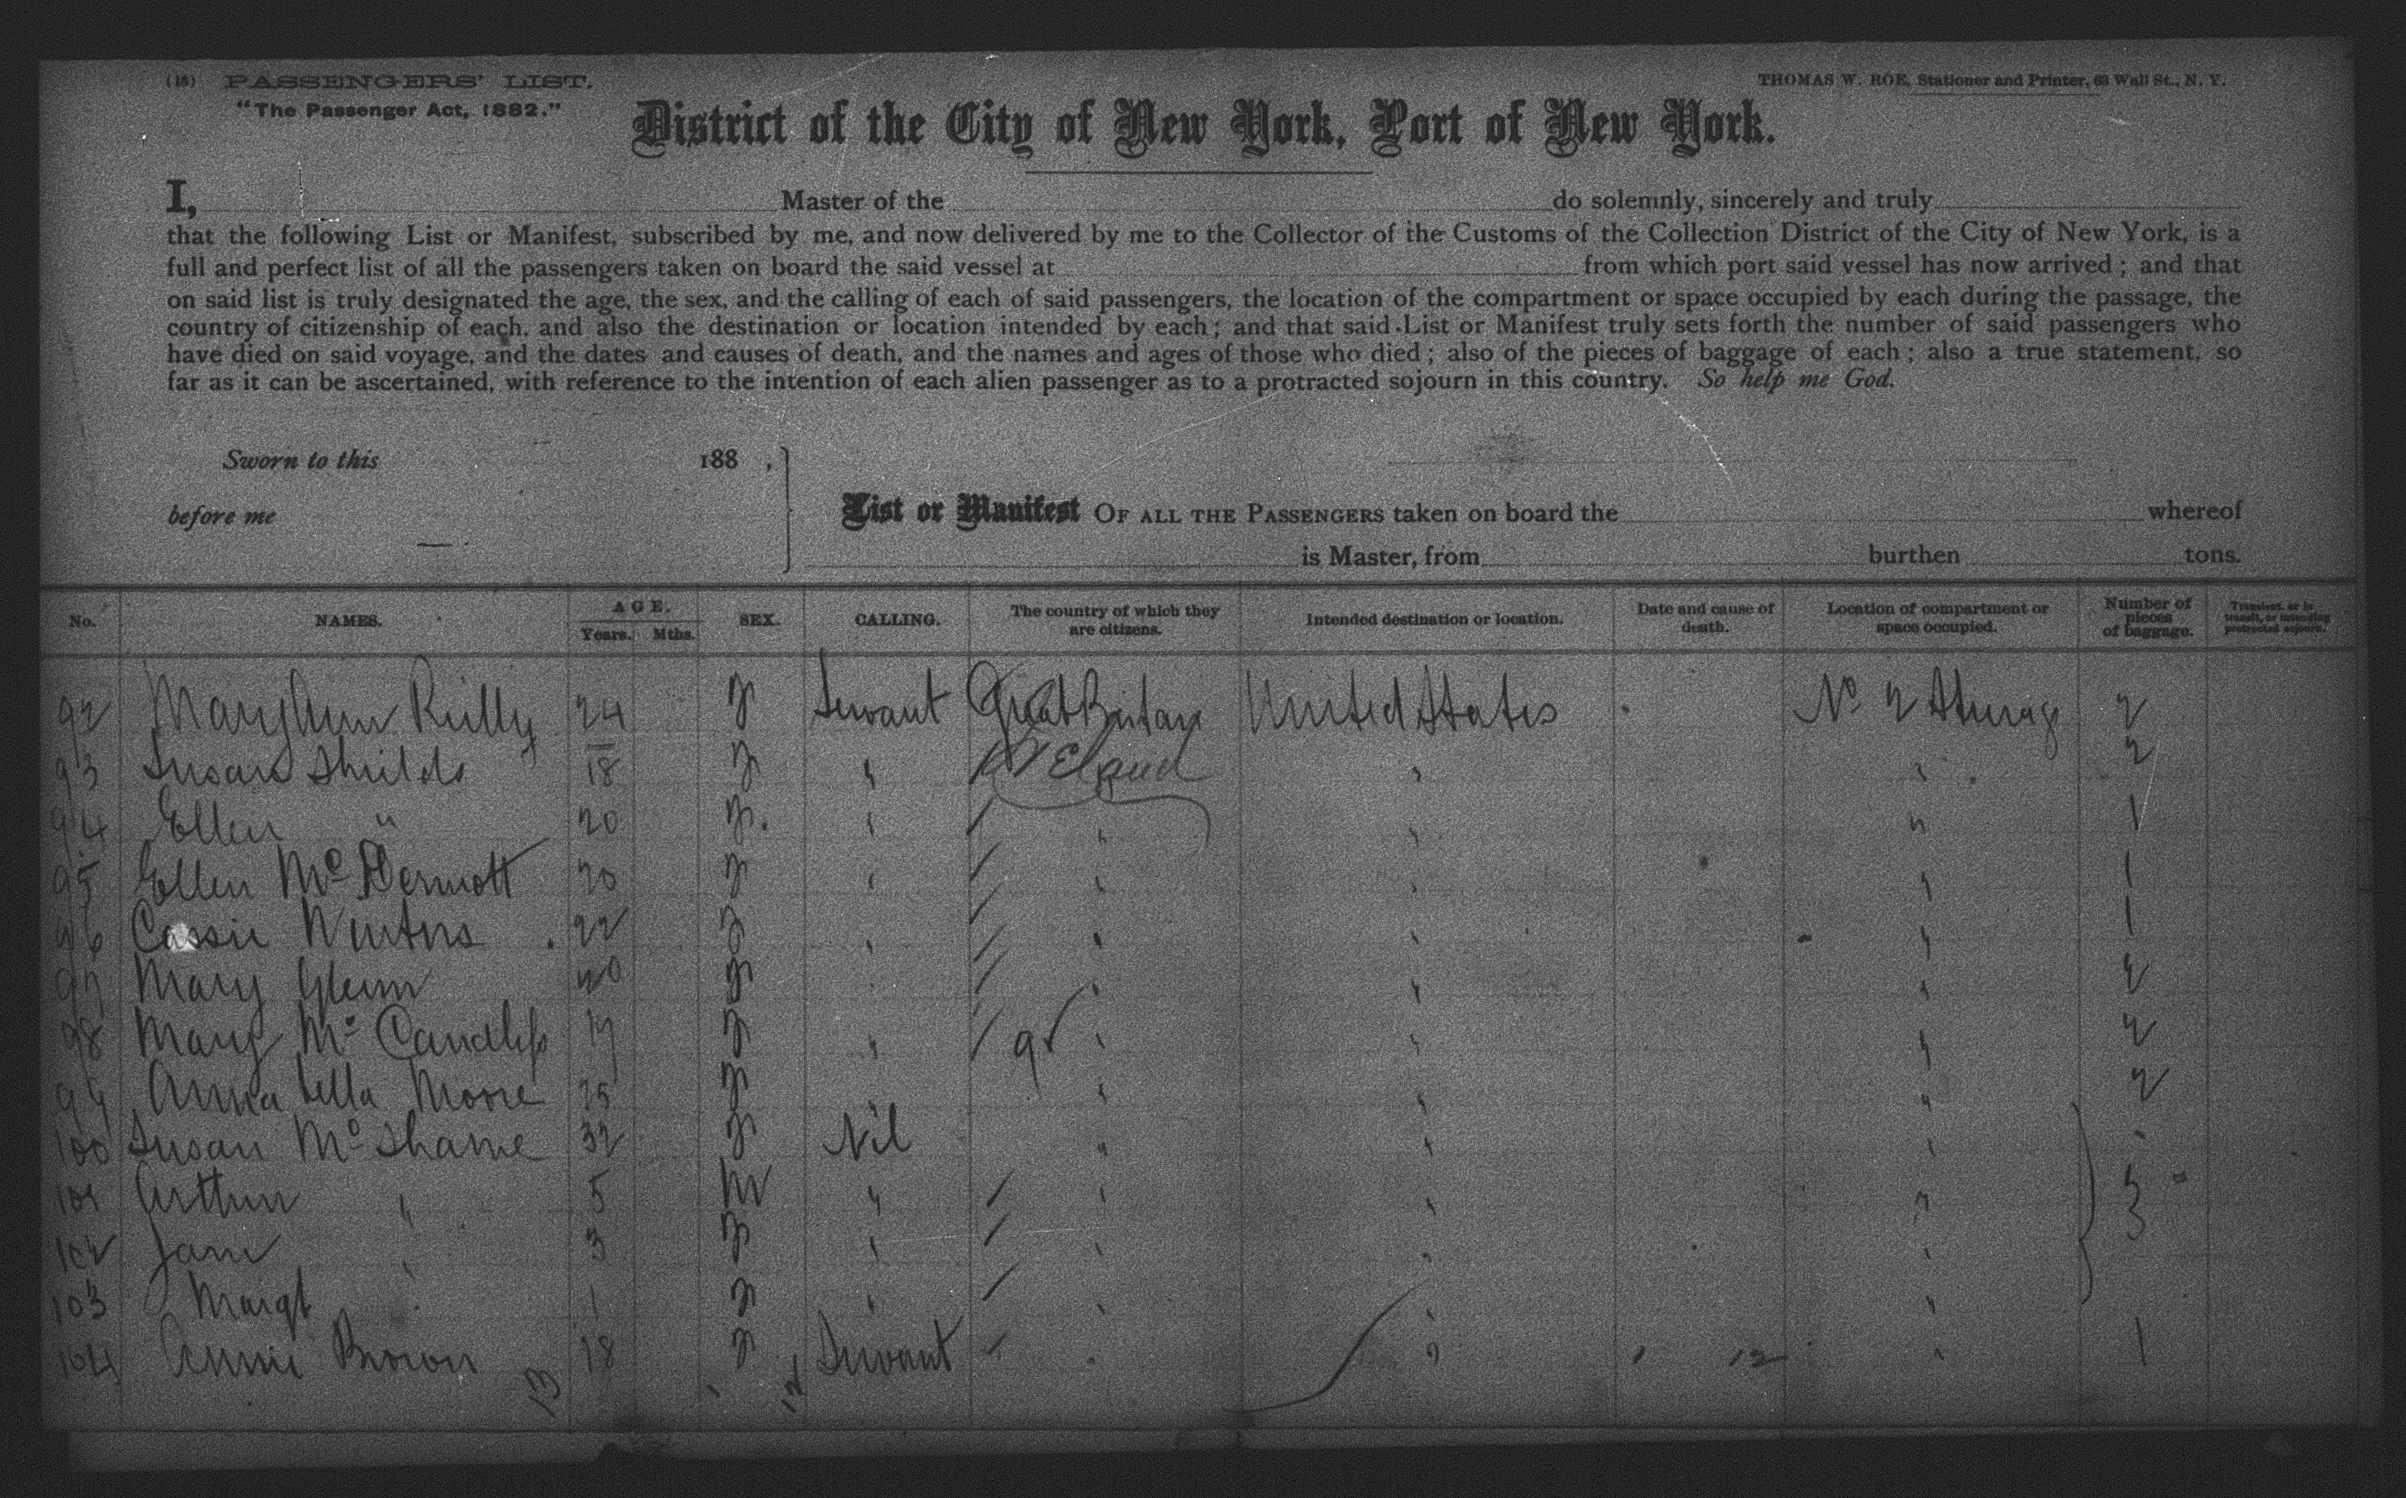 (18) PASSENGERS' LIST.
"The Passenger Act, 1882."
THOMAS W. ROE, Stationer and Printer, 63 Wall St., N. Y.
District of the City of New York, Port of New York.
I, Master of the do solemnly, sincerely and truly
that the following List or Manifest, subscribed by me, and now delivered by me to the Collector of the Customs of the Collection District of the City of New York, is a
full and perfect list of all the passengers taken on board the said vessel at from which port said vessel has now arrived; and that
on said list is truly designated the age, the sex, and the calling of each of said passengers, the location of the compartment or space occupied by each during the passage, the
country of citizenship of each, and also the destination or location intended by each; and that said List or Manifest truly sets forth the number of said passengers who
have died on said voyage, and the dates and causes of death, and the names and ages of those who died; also of the pieces of baggage of each; also a true statement, so
far as it can be ascertained, with reference to the intention of each alien passenger as to a protracted sojourn in this country. So help me God.
Sworn to this 188 ,
before me
List or Manifest OF ALL THE PASSENGERS taken on board the whereof
is Master, from burthen tons.
No. NAMES. AGE. Years. Mths. SEX. CALLING. The country of which they are citizens. Intended destination or location. Date and cause of death. Location of compartment or space occupied. Number of pieces of baggage. Transient, or in transit, or intending protracted sojourn.
92 Mary Ann Reilly 24 F Servant Great Britain United States No 2 Steerage 2
93 Susan Shields 18 F " Ireland " " 2
94 Ellen " 20 F. " " " " 1
95 Ellen McDermott 20 F " " " " 1
96 Cassie Winters 22 F " " " " 1
97 Mary Glenn 20 F " " " 2
98 Mary McCandless 19 F " " " " 2
99 Anna bella Moore 25 F " " " " 2
100 Susan McShane 32 F Nil " " "
101 Arthur " 5 M " " " " 3
102 Jane " 3 F " " " "
103 Margt " 1 F " " " "
104 Annie Brown 18 F Servant " " " 1
13 12 12